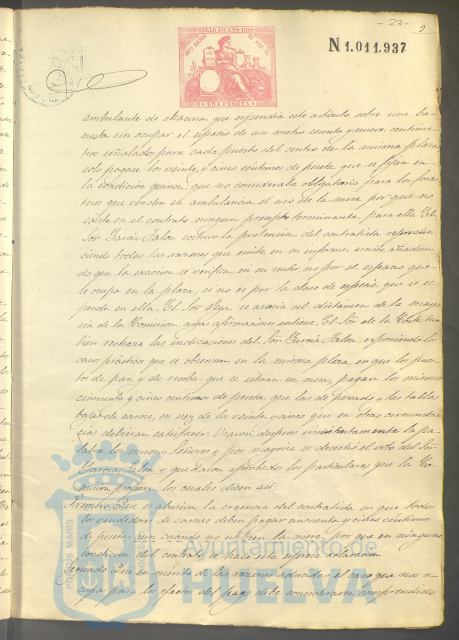 - 23 -
2
SELLO 11º AÑO 1890
N 1.011.937
UNA PESETA
ambulante de chacina que espendia este articulo sobre una ba-
nasta sin ocupar el espacio de un metro cuenta y nueve centime-
tros señalados para cada puesto del centro de la misma plaza
solo pagase los veinte y cinco centimos de peseta que se fijan en
la condicion quince, que no consideraba obligatorio para los foras-
teros que venden en ambulancia el uso de la mesa por que no
existe en el contrato ningun precepto terminante para ello. El
Sor Garcia Jalon sostuvo la pretension del contratista reprodu-
ciendo todas las razones que emite en su informe escrito, añadien-
do que la exaccion se verifica, en su sentir no por el espacio que
se ocupa en la plaza, si no es por la clase de especie que se es-
pende en ella. El Sor Vega se asocia al dictamen de la mayo-
ria de la Comision, cuyas afirmaciones sostiene. El Sor de la Corte tam-
bien rechaza las indicaciones del Sor Garcia Jalon exponiendo los
casos prácticos que se observan en la misma plaza, en que los pues-
tos de pan y de recoba que se situan en mesa, pagan los mismos
cincuenta y cinco centimos de peseta que los de pescado y las tablas
bajas de carne, en vez de los veinte y cinco que en otras circunstan-
cias debieran satisfacer. Usaron despues indistintamente la pa-
labra los mismos Señores y por mayoria se desechó el voto del Sor
Garcia Jalon y quedaron aprobados los particulares que la Co-
mision propone los cuales dicen asi:
Primero: Que es abusiva la creencia del contratista en que todos
los vendedores de carnes deben pagar cincuenta y cinco centimos
de peseta aun cuando no usen la mesa, por que en ninguna
condicion del contrato se hace esa determinacion
Segundo: Que en merito de las razones aducidas el caso que nos o-
cupa para los efectos del pago debe considerarse comprendido
PORTUS MARIS
Ayuntamiento de
HUELVA